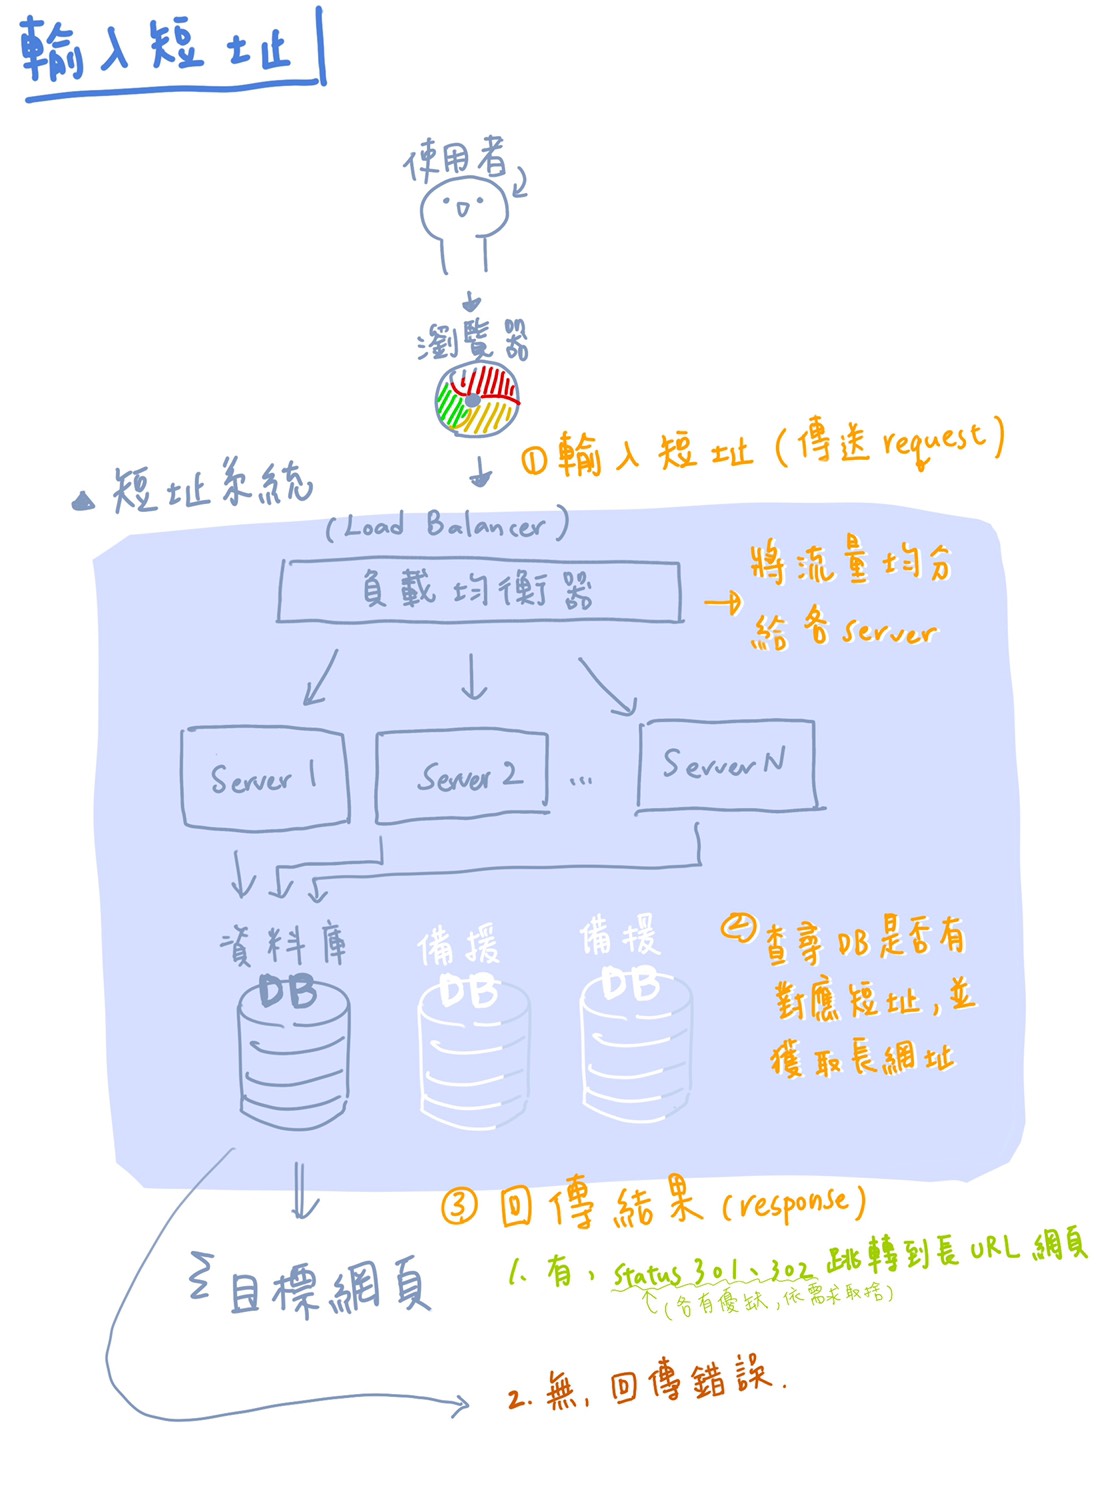 輸入短址
使用者
瀏覽器
①輸入短址(傳送request)
▲短址系統
(Load Balancer)
負載均衡器
→將流量均分
給各server
Server 1
Server 2
...
Server N
資料庫
DB
備援
DB
備援
DB
②查尋DB是否有
對應短址,並
獲取長網址
③回傳結果(response)
1. 有, status 301、302 跳轉到長URL網頁
(各有優缺,依需求取捨)
目標網頁
2. 無, 回傳錯誤.